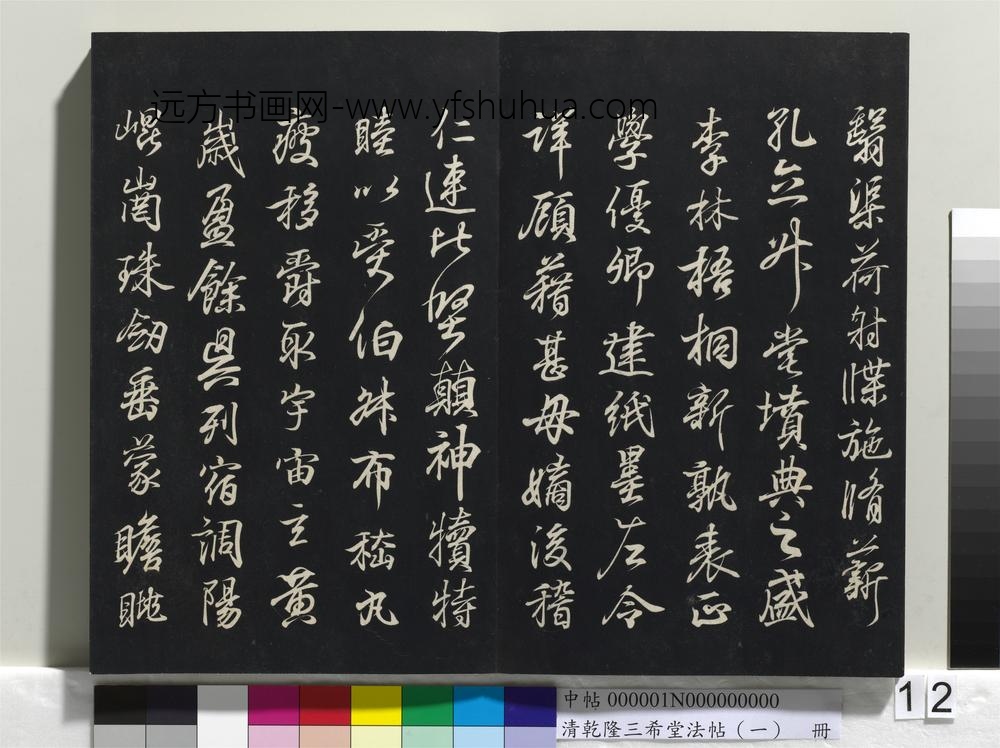 远方书画网-www.yfshuhua.com
翳渠荷射牒施脩薪
孔立升堂墳典之盛
李林梧桐新孰表正
學優卿建紙墨左令
詳顧藉甚毋嫡後稽
仁連此堅顛神犢特
睦以受伯叔布嵇丸
疲移爵取宇宙主黄
歲盈餘具列宿調陽
崐崗珠劒垂蒙瞻眺
中帖 000001N000000000
清乾隆三希堂法帖（一） 冊
12